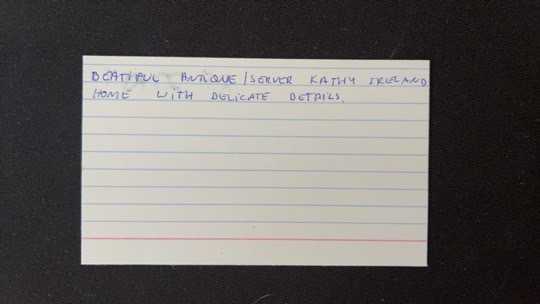 BEATIFUL ANTIQUE/SERVER KATHY IRELAND
HOME WITH DELICATE DETAILS.